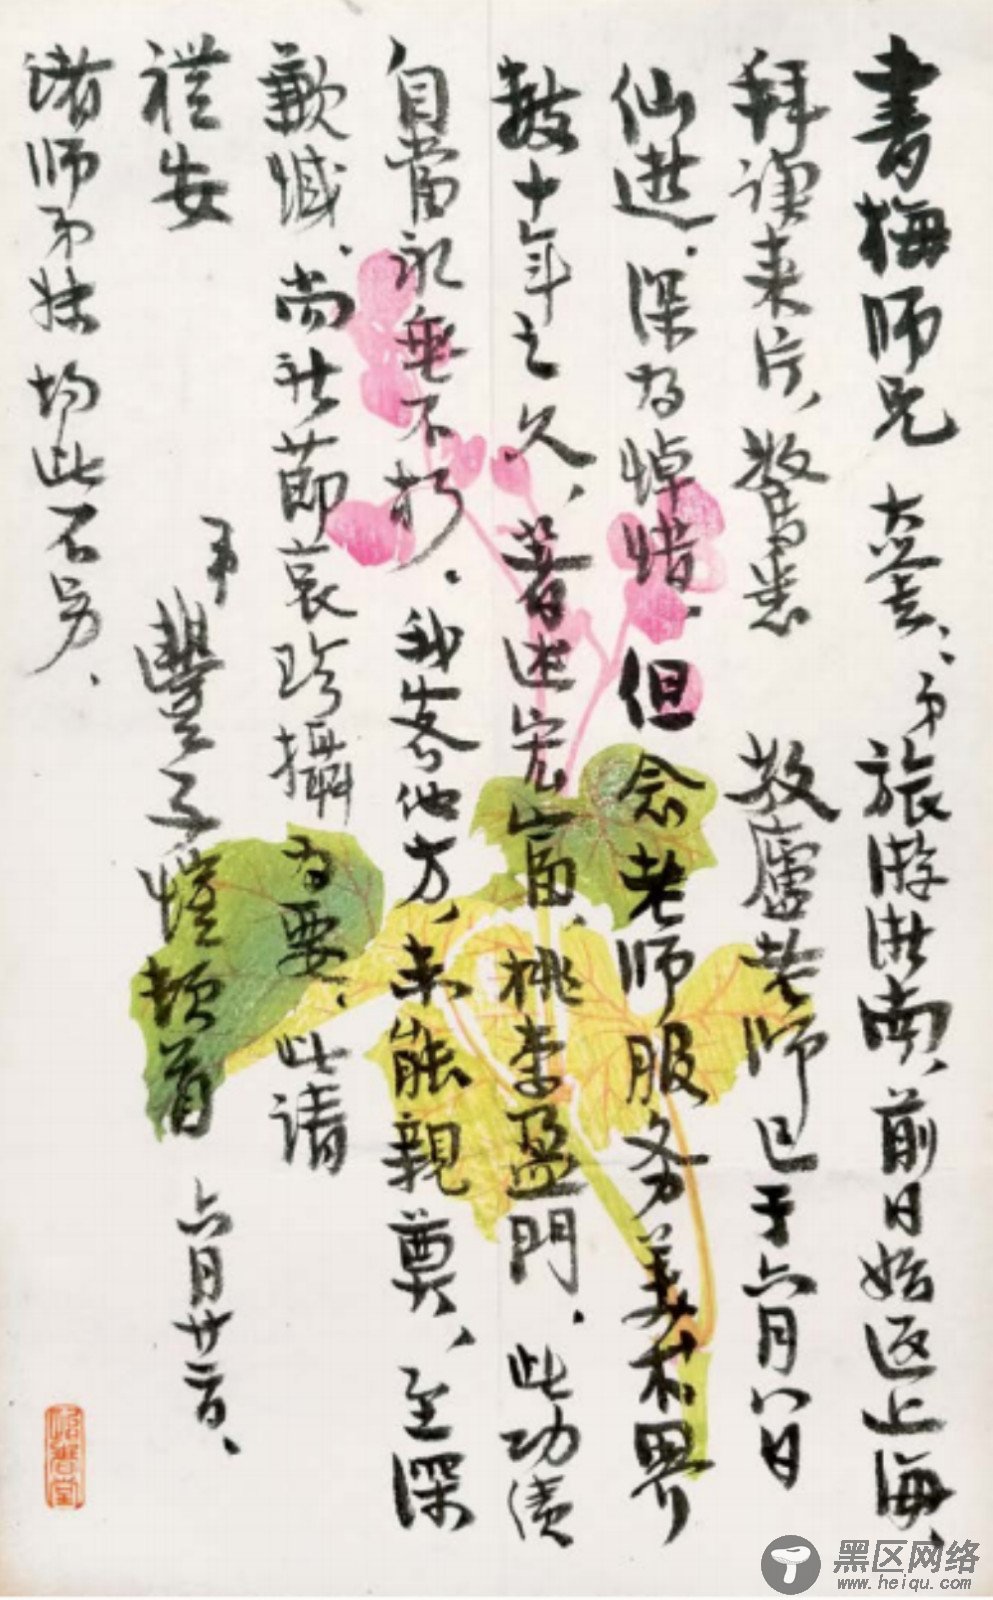 書梅師兄大鑒、弟旅游洪南、前日始返上海、
拜讀来片、驚悉 敬廬老師已于六月八日
仙逝．深为悼惜．但念老師服务美术界
数十年之久、著述宏富、桃李盈門．此功績
自當永垂不朽．我客他方、未能親奠、至深
歉憾．尚祈節哀珍攝为要．此請
禮安
弟 豐子愷頓首 六月廿二日、
諸師弟妹均此不另、
黑区网络
www.heiqu.com